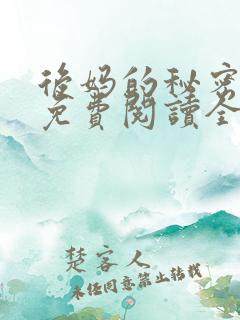 後妈的秘密
免費閱讀全
楚客人
未经同意禁止转载